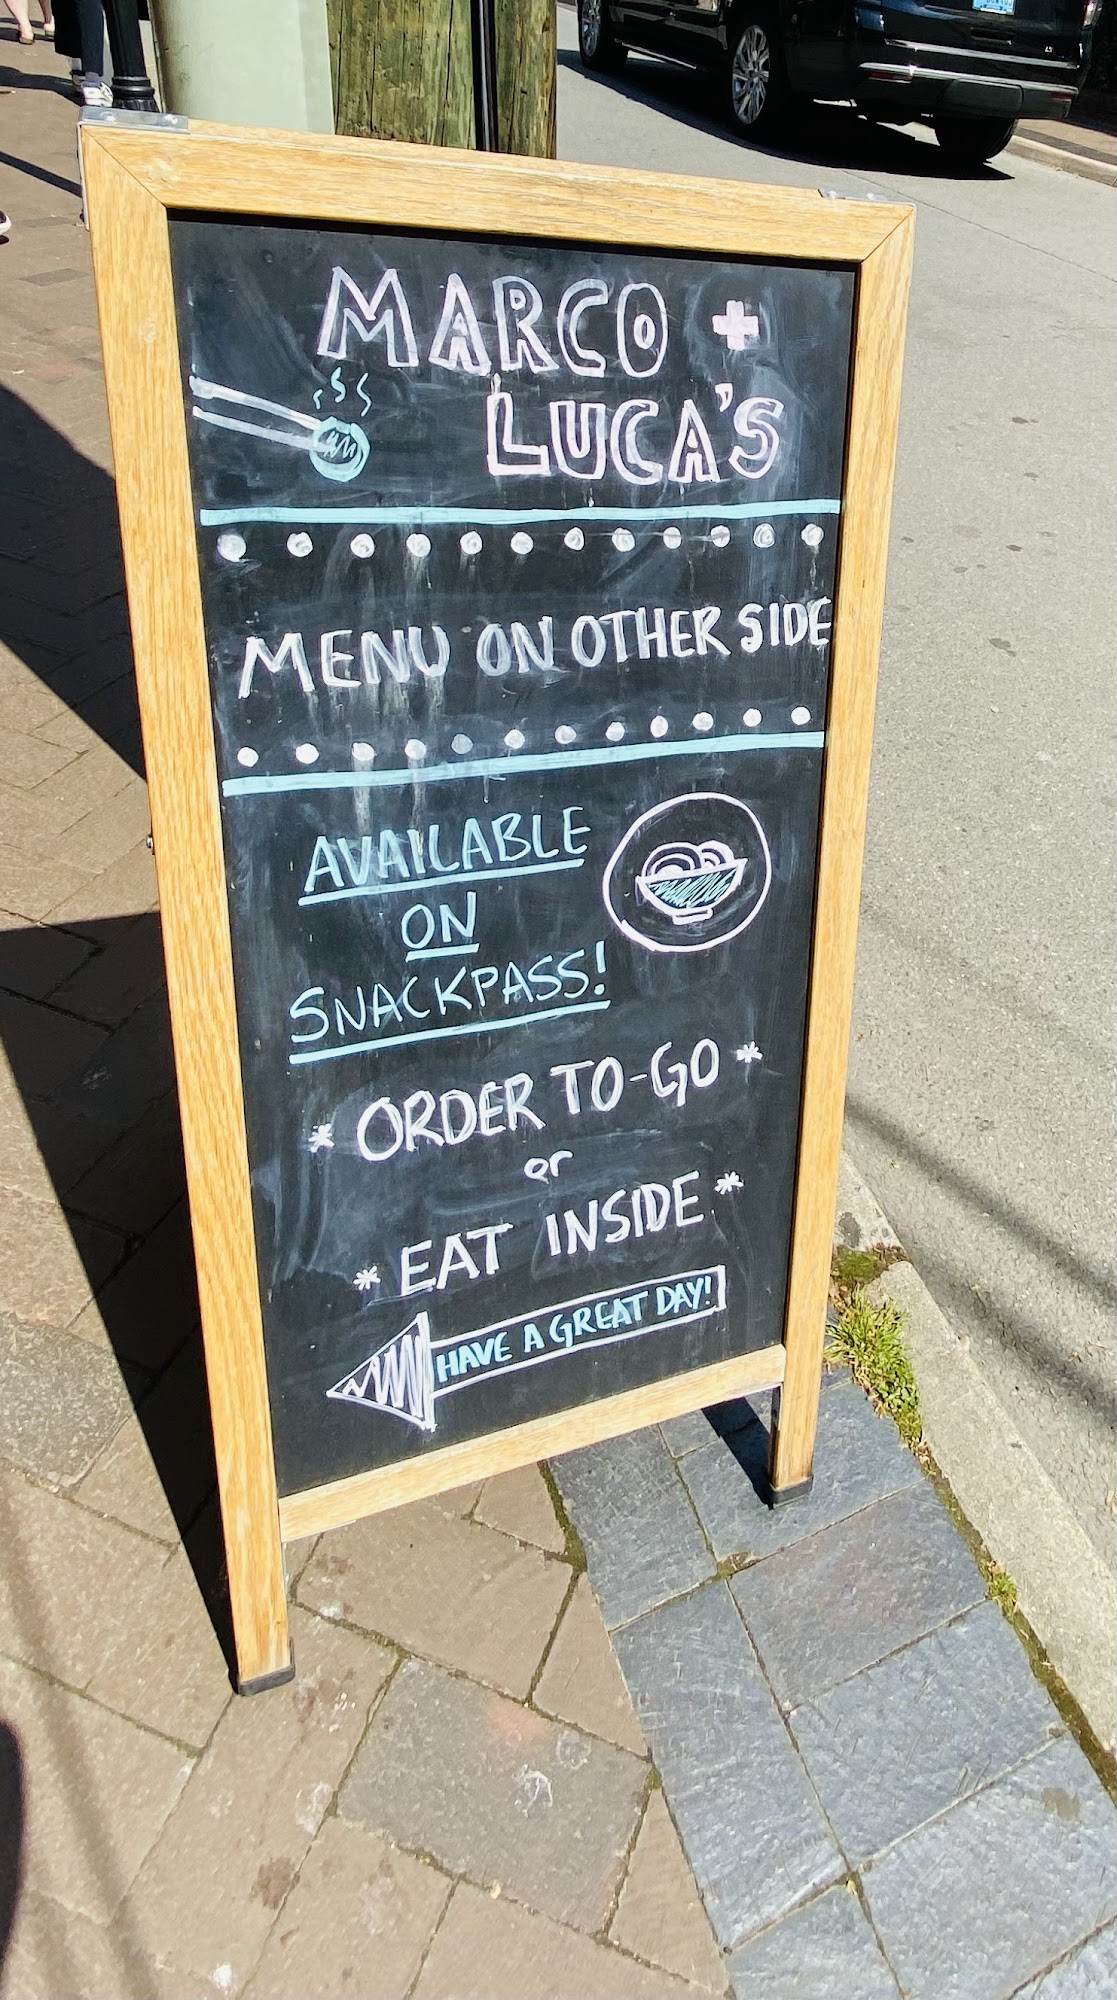 MARCO +
LUCA'S
MENU ON OTHER SIDE
AVAILABLE
ON
SNACKPASS!
* ORDER TO-GO *
or
* EAT INSIDE *
HAVE A GREAT DAY!